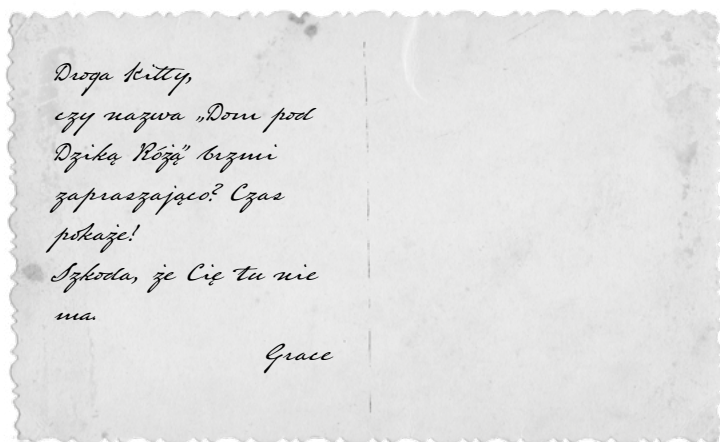 Droga Kitty,
czy nazwa „Dom pod
Dziką Różą” brzmi
zapraszająco? Czas
pokaże!
Szkoda, że Cię tu nie
ma.
Grace